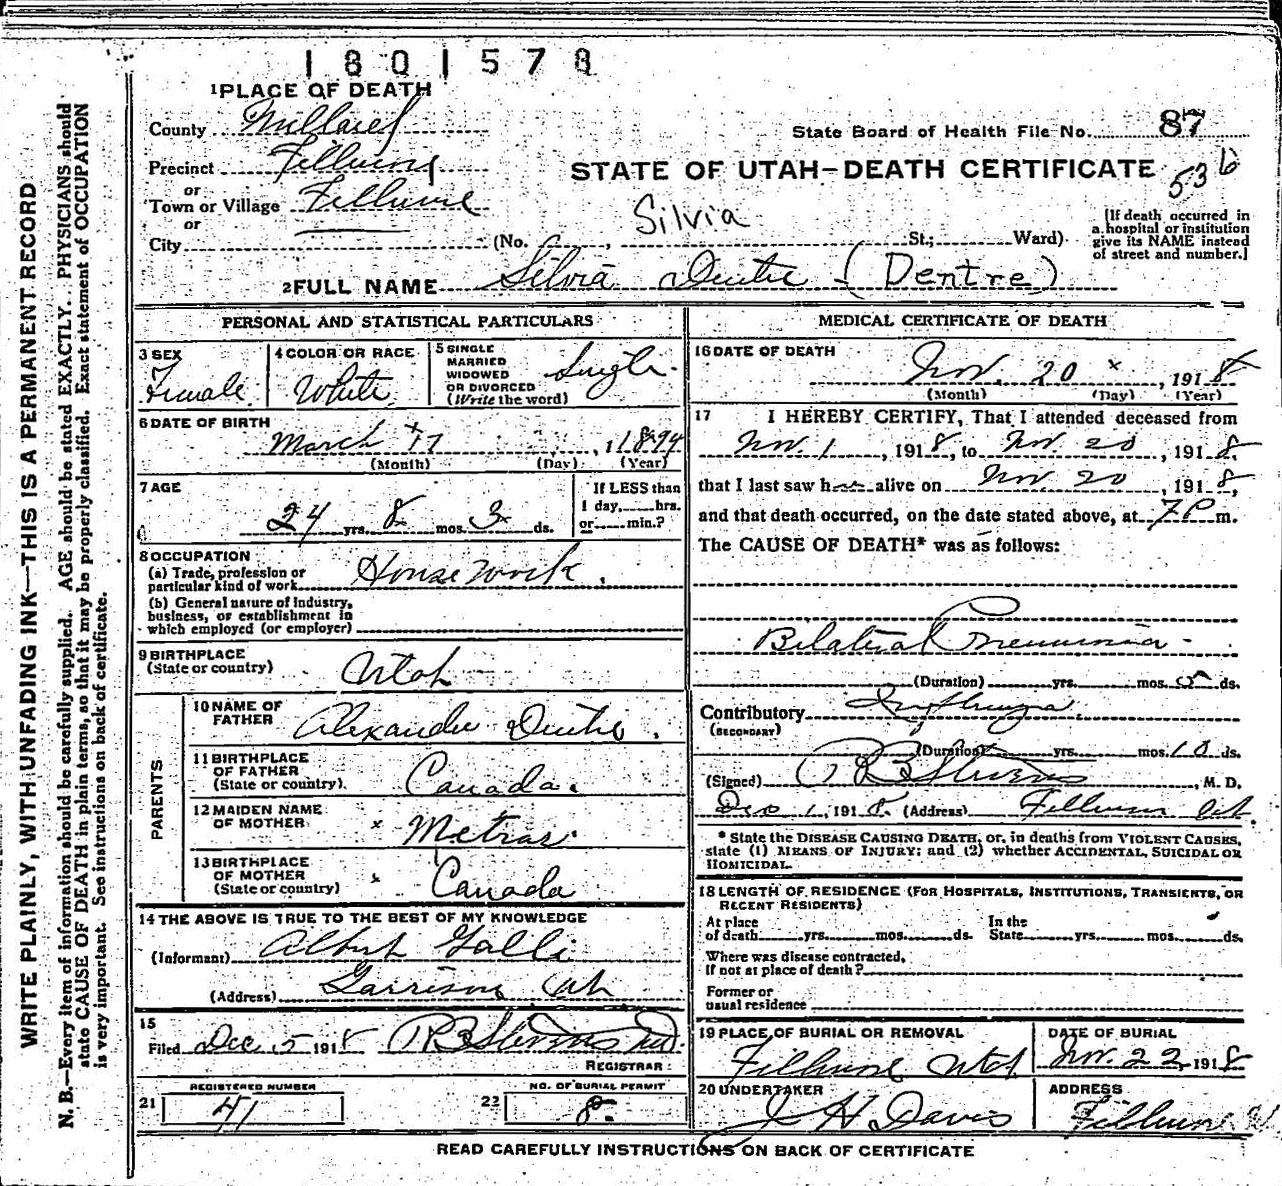 1801578
1 PLACE OF DEATH
County Millard
State Board of Health File No. 87
Precinct Fillmore
STATE OF UTAH—DEATH CERTIFICATE
536
or
Town or Village Fillmore
or
Silvia
City (No. , St.; Ward)
[If death occurred in
a hospital or institution
give its NAME instead
of street and number.]
2 FULL NAME Silvia Dentre (Dentre)
PERSONAL AND STATISTICAL PARTICULARS
3 SEX
Female
4 COLOR OR RACE
White
5 SINGLE
MARRIED
WIDOWED
OR DIVORCED
(Write the word)
Single
6 DATE OF BIRTH
March 17, 1894
(Month) (Day) (Year)
7 AGE
24 yrs. 8 mos. 3 ds.
If LESS than
1 day, hrs.
or min.?
8 OCCUPATION
(a) Trade, profession or
particular kind of work Housework.
(b) General nature of industry,
business, or establishment in
which employed (or employer)
9 BIRTHPLACE
(State or country) Utah
PARENTS
10 NAME OF
FATHER Alexander Dentre.
11 BIRTHPLACE
OF FATHER
(State or country) Canada.
12 MAIDEN NAME
OF MOTHER x Metras.
13 BIRTHPLACE
OF MOTHER
(State or country) x Canada
14 THE ABOVE IS TRUE TO THE BEST OF MY KNOWLEDGE
(Informant) Albert Galli
(Address) Garrison Utah
15
Filed Dec 5 1918 R B Stevens Md
REGISTRAR
REGISTERED NUMBER
21 41
NO. OF BURIAL PERMIT
22 8
MEDICAL CERTIFICATE OF DEATH
16 DATE OF DEATH
Nov. 20 x, 1918
(Month) (Day) (Year)
17 I HEREBY CERTIFY, That I attended deceased from
Nov. 1, 1918, to Nov. 20, 1918.
that I last saw her alive on Nov. 20, 1918,
and that death occurred, on the date stated above, at 7 P m.
The CAUSE OF DEATH* was as follows:
Bilateral Pneumonia
(Duration) yrs. mos. 5 ds.
Contributory Influenza
(SECONDARY)
(Duration) yrs. mos. 10 ds.
(Signed) R B Stevens, M. D.
Dec 1, 1918. (Address) Fillmore Ut.
* State the DISEASE CAUSING DEATH, or, in deaths from VIOLENT CAUSES,
state (1) MEANS OF INJURY; and (2) whether ACCIDENTAL, SUICIDAL OR
HOMICIDAL.
18 LENGTH OF RESIDENCE (FOR HOSPITALS, INSTITUTIONS, TRANSIENTS, OR
RECENT RESIDENTS)
At place
of death yrs. mos. ds.
In the
State yrs. mos. ds.
Where was disease contracted,
if not at place of death?
Former or
usual residence
19 PLACE OF BURIAL OR REMOVAL
Fillmore Utah
DATE OF BURIAL
Nov. 22, 1918
20 UNDERTAKER
J H Davis
ADDRESS
Fillmore U.
READ CAREFULLY INSTRUCTIONS ON BACK OF CERTIFICATE
WRITE PLAINLY, WITH UNFADING INK—THIS IS A PERMANENT RECORD
N. B.—Every item of information should be carefully supplied. AGE should be stated EXACTLY. PHYSICIANS should
state CAUSE OF DEATH in plain terms, so that it may be properly classified. Exact statement of OCCUPATION
is very important. See instructions on back of certificate.